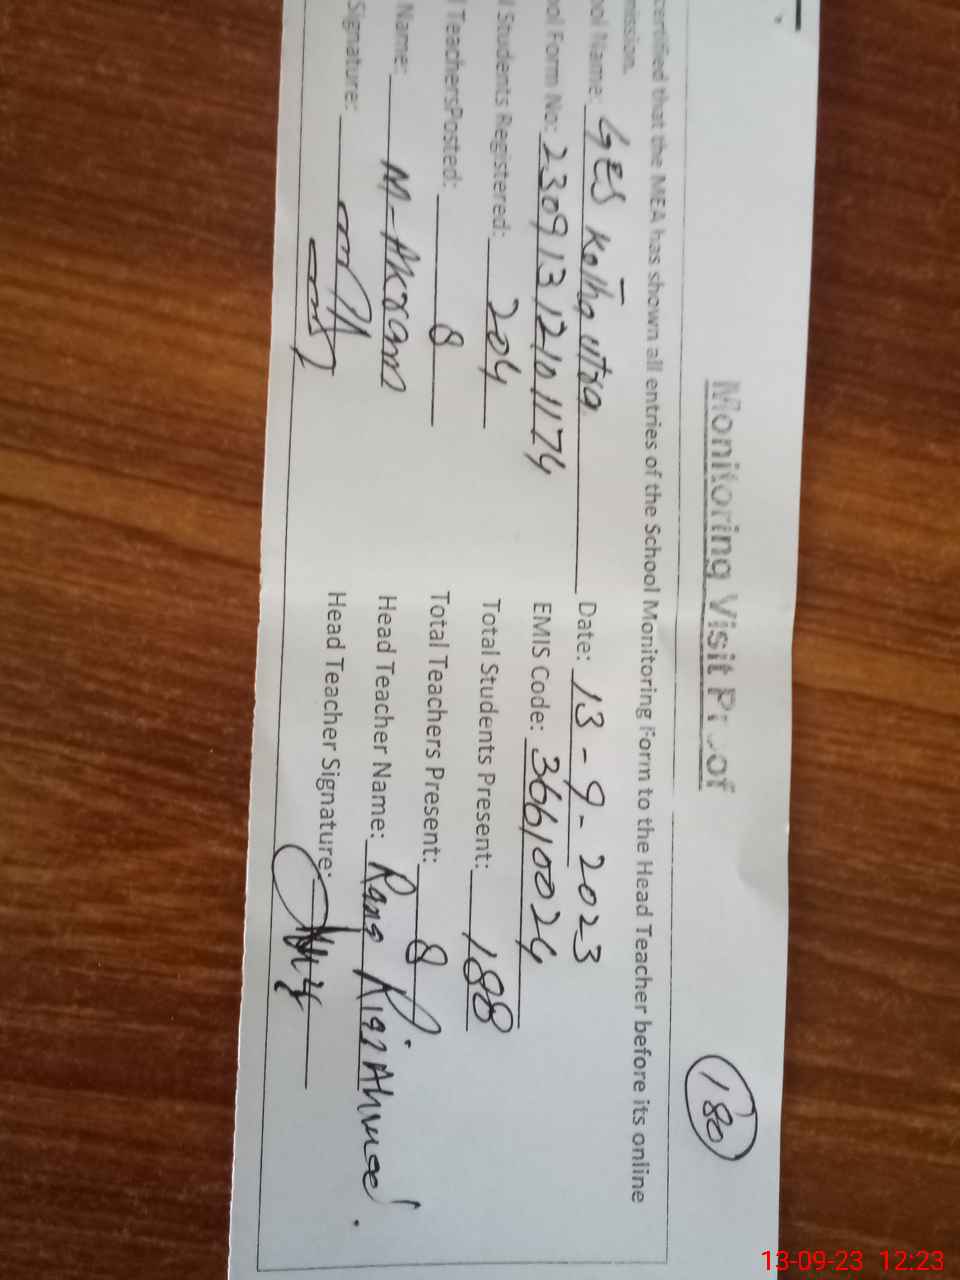 Monitoring Visit Proof
180
certified that the MEA has shown all entries of the School Monitoring Form to the Head Teacher before its online
mission.
ool Name: GES Kotha utra Date: 13-9-2023
ool Form No: 2309131210 1174 EMIS Code: 36610024
l Students Registered: 204 Total Students Present: 188
l TeachersPosted: 8 Total Teachers Present: 8
Name: M-Akram Head Teacher Name: Rana Riaz Ahmed.
Signature: Head Teacher Signature:
13-09-23 12:23